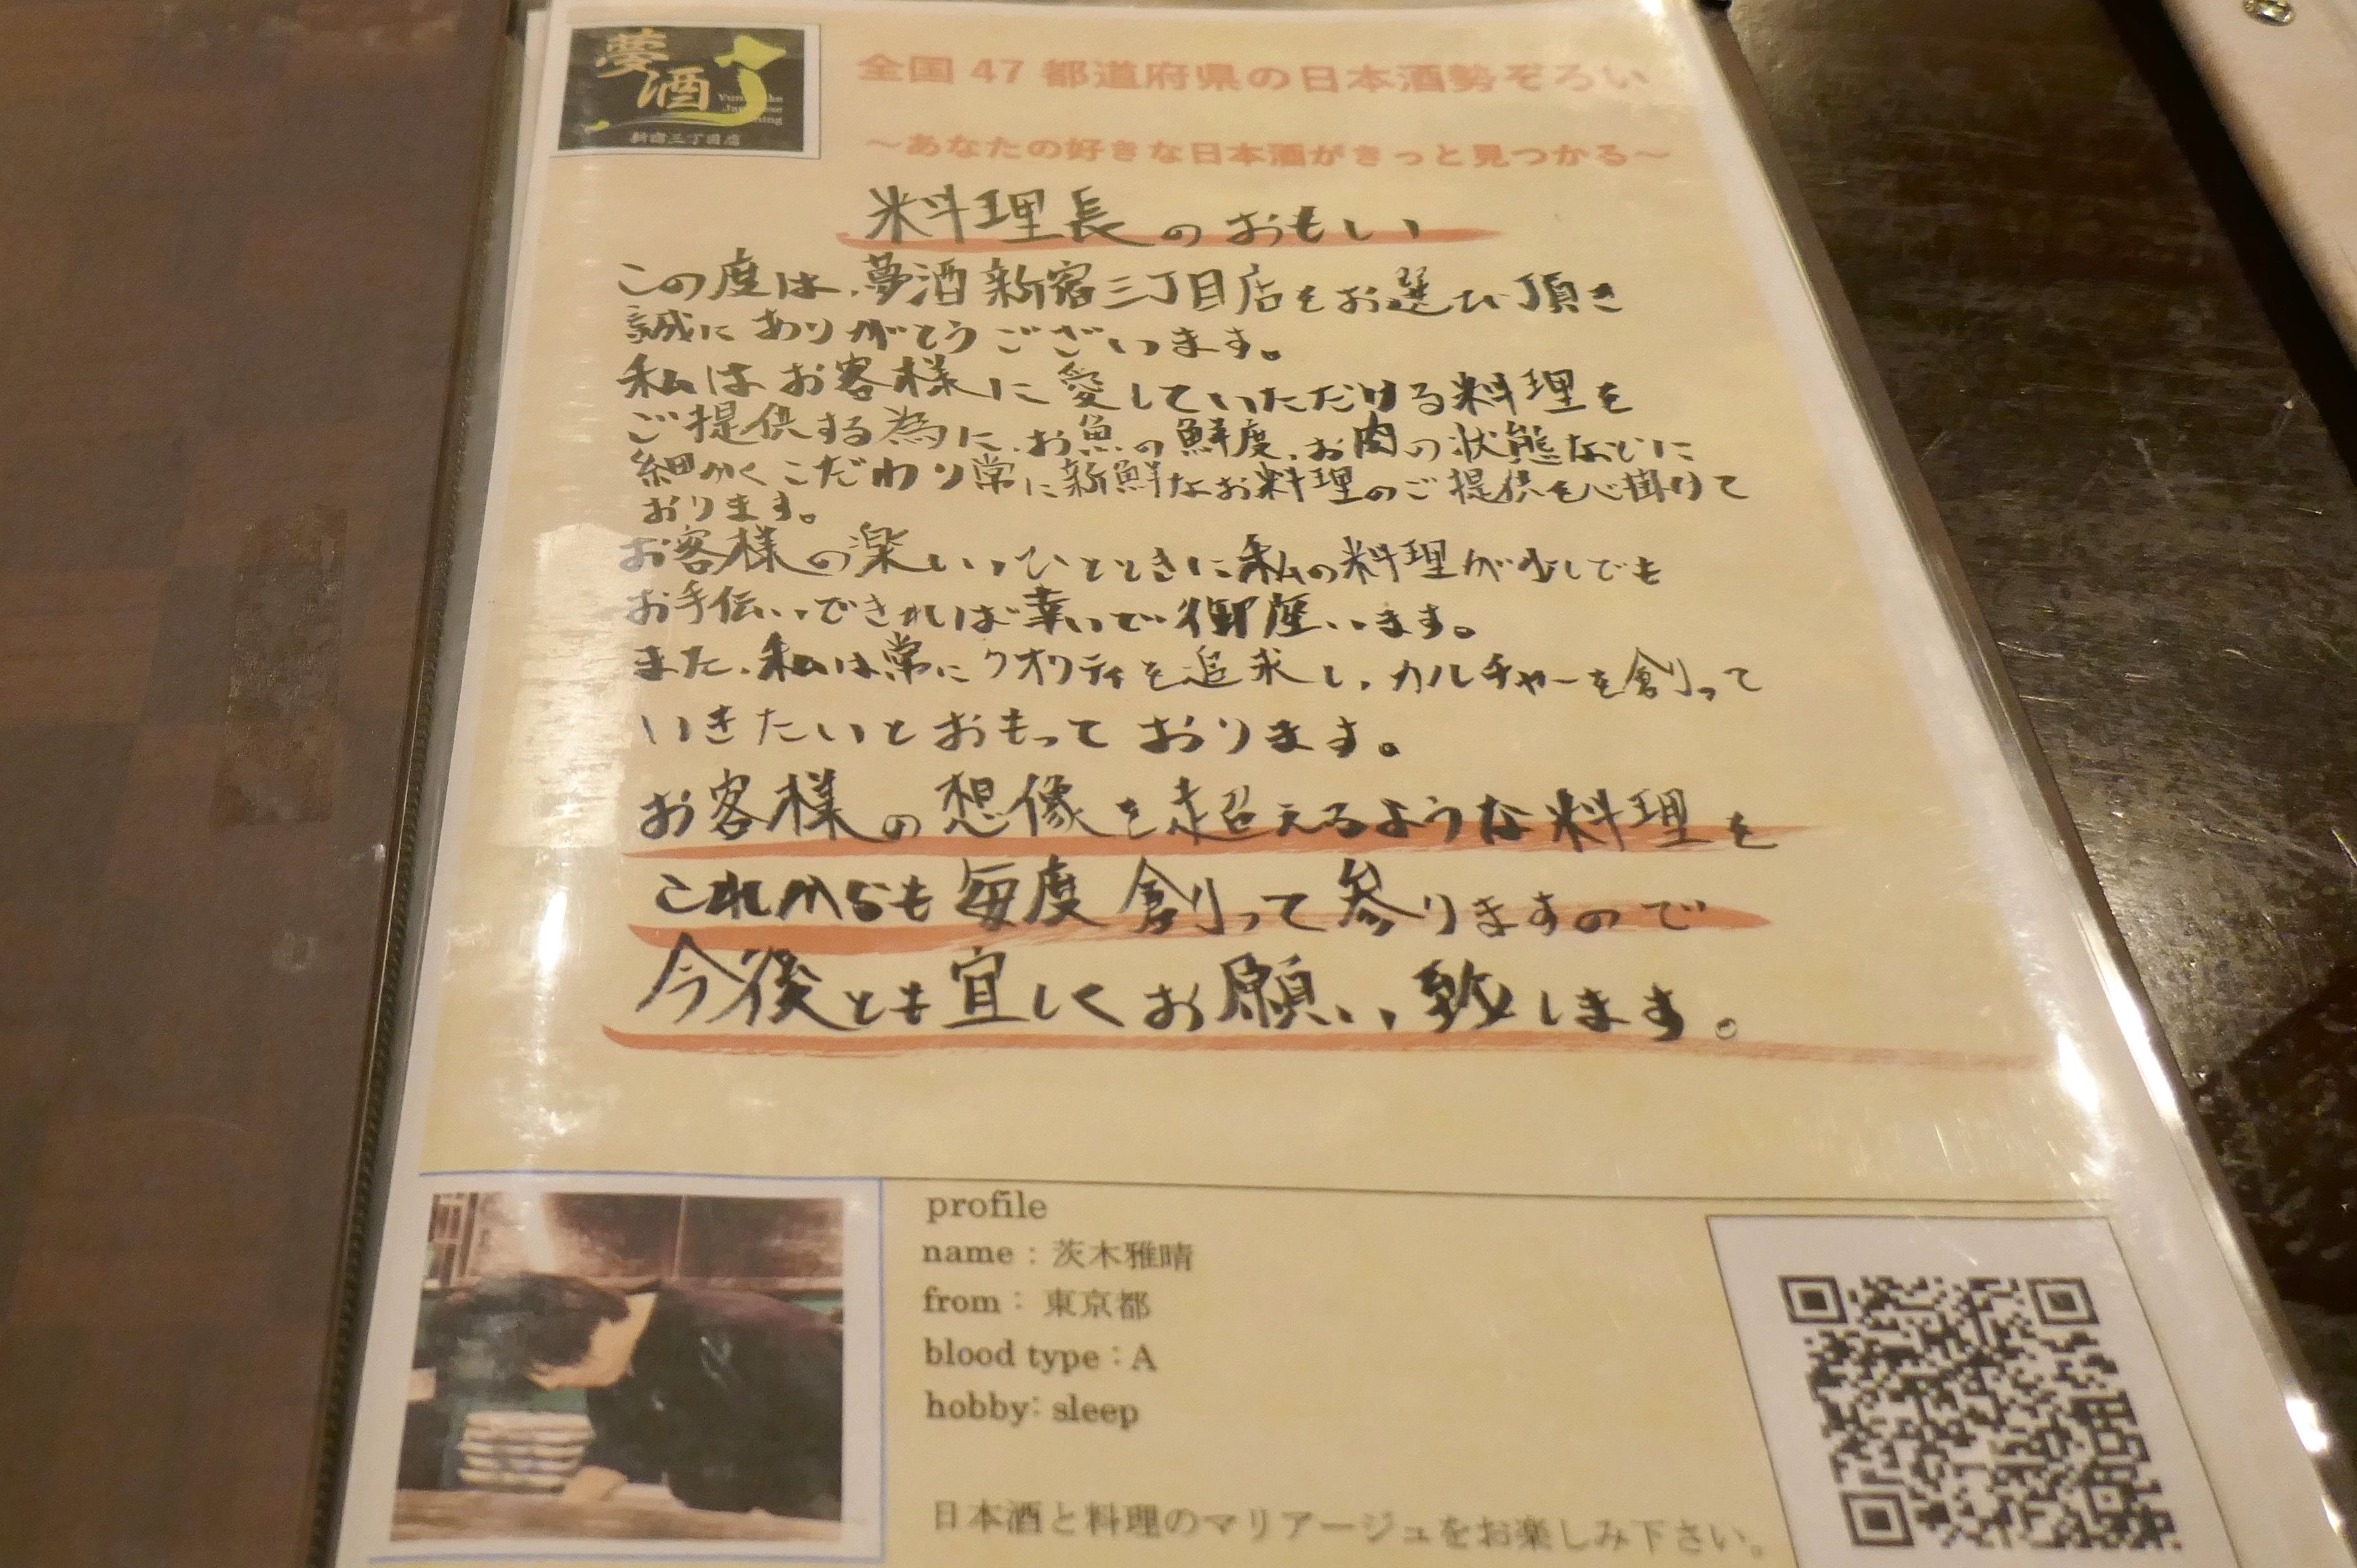 夢酒
新宿三丁目店
全国 47 都道府県の日本酒勢ぞろい
～あなたの好きな日本酒がきっと見つかる～
料理長のおもい
この度は、夢酒新宿三丁目店をお選び頂き
誠にありがとうございます。
私はお客様に愛していただける料理を
ご提供する為に、お魚の鮮度、お肉の状態などに
細かくこだわり常に新鮮なお料理のご提供を心掛けて
おります。
お客様の楽しいひとときに私の料理が少しでも
お手伝いできれば幸いで御座います。
また、私は常にクオリティを追求し、カルチャーを創って
いきたいとおもっております。
お客様の想像を超えるような料理を
これからも毎度創って参りますので
今後とも宜しくお願い致します。
profile
name : 茨木雅晴
from : 東京都
blood type : A
hobby: sleep
日本酒と料理のマリアージュをお楽しみ下さい。